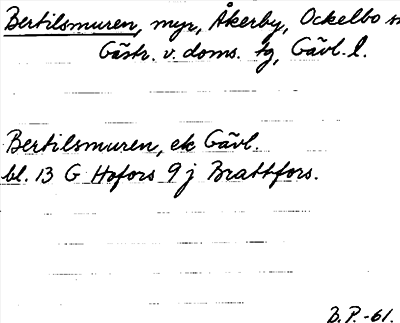 Bertilsmuren, myr, Åkerby, Ockelbo
Gästr. v. doms. tg, Gävl. l.
Bertilsmuren, ek Gävl.
bl. 13 G Hofors 9 j Brattfors.
B.P.-61.